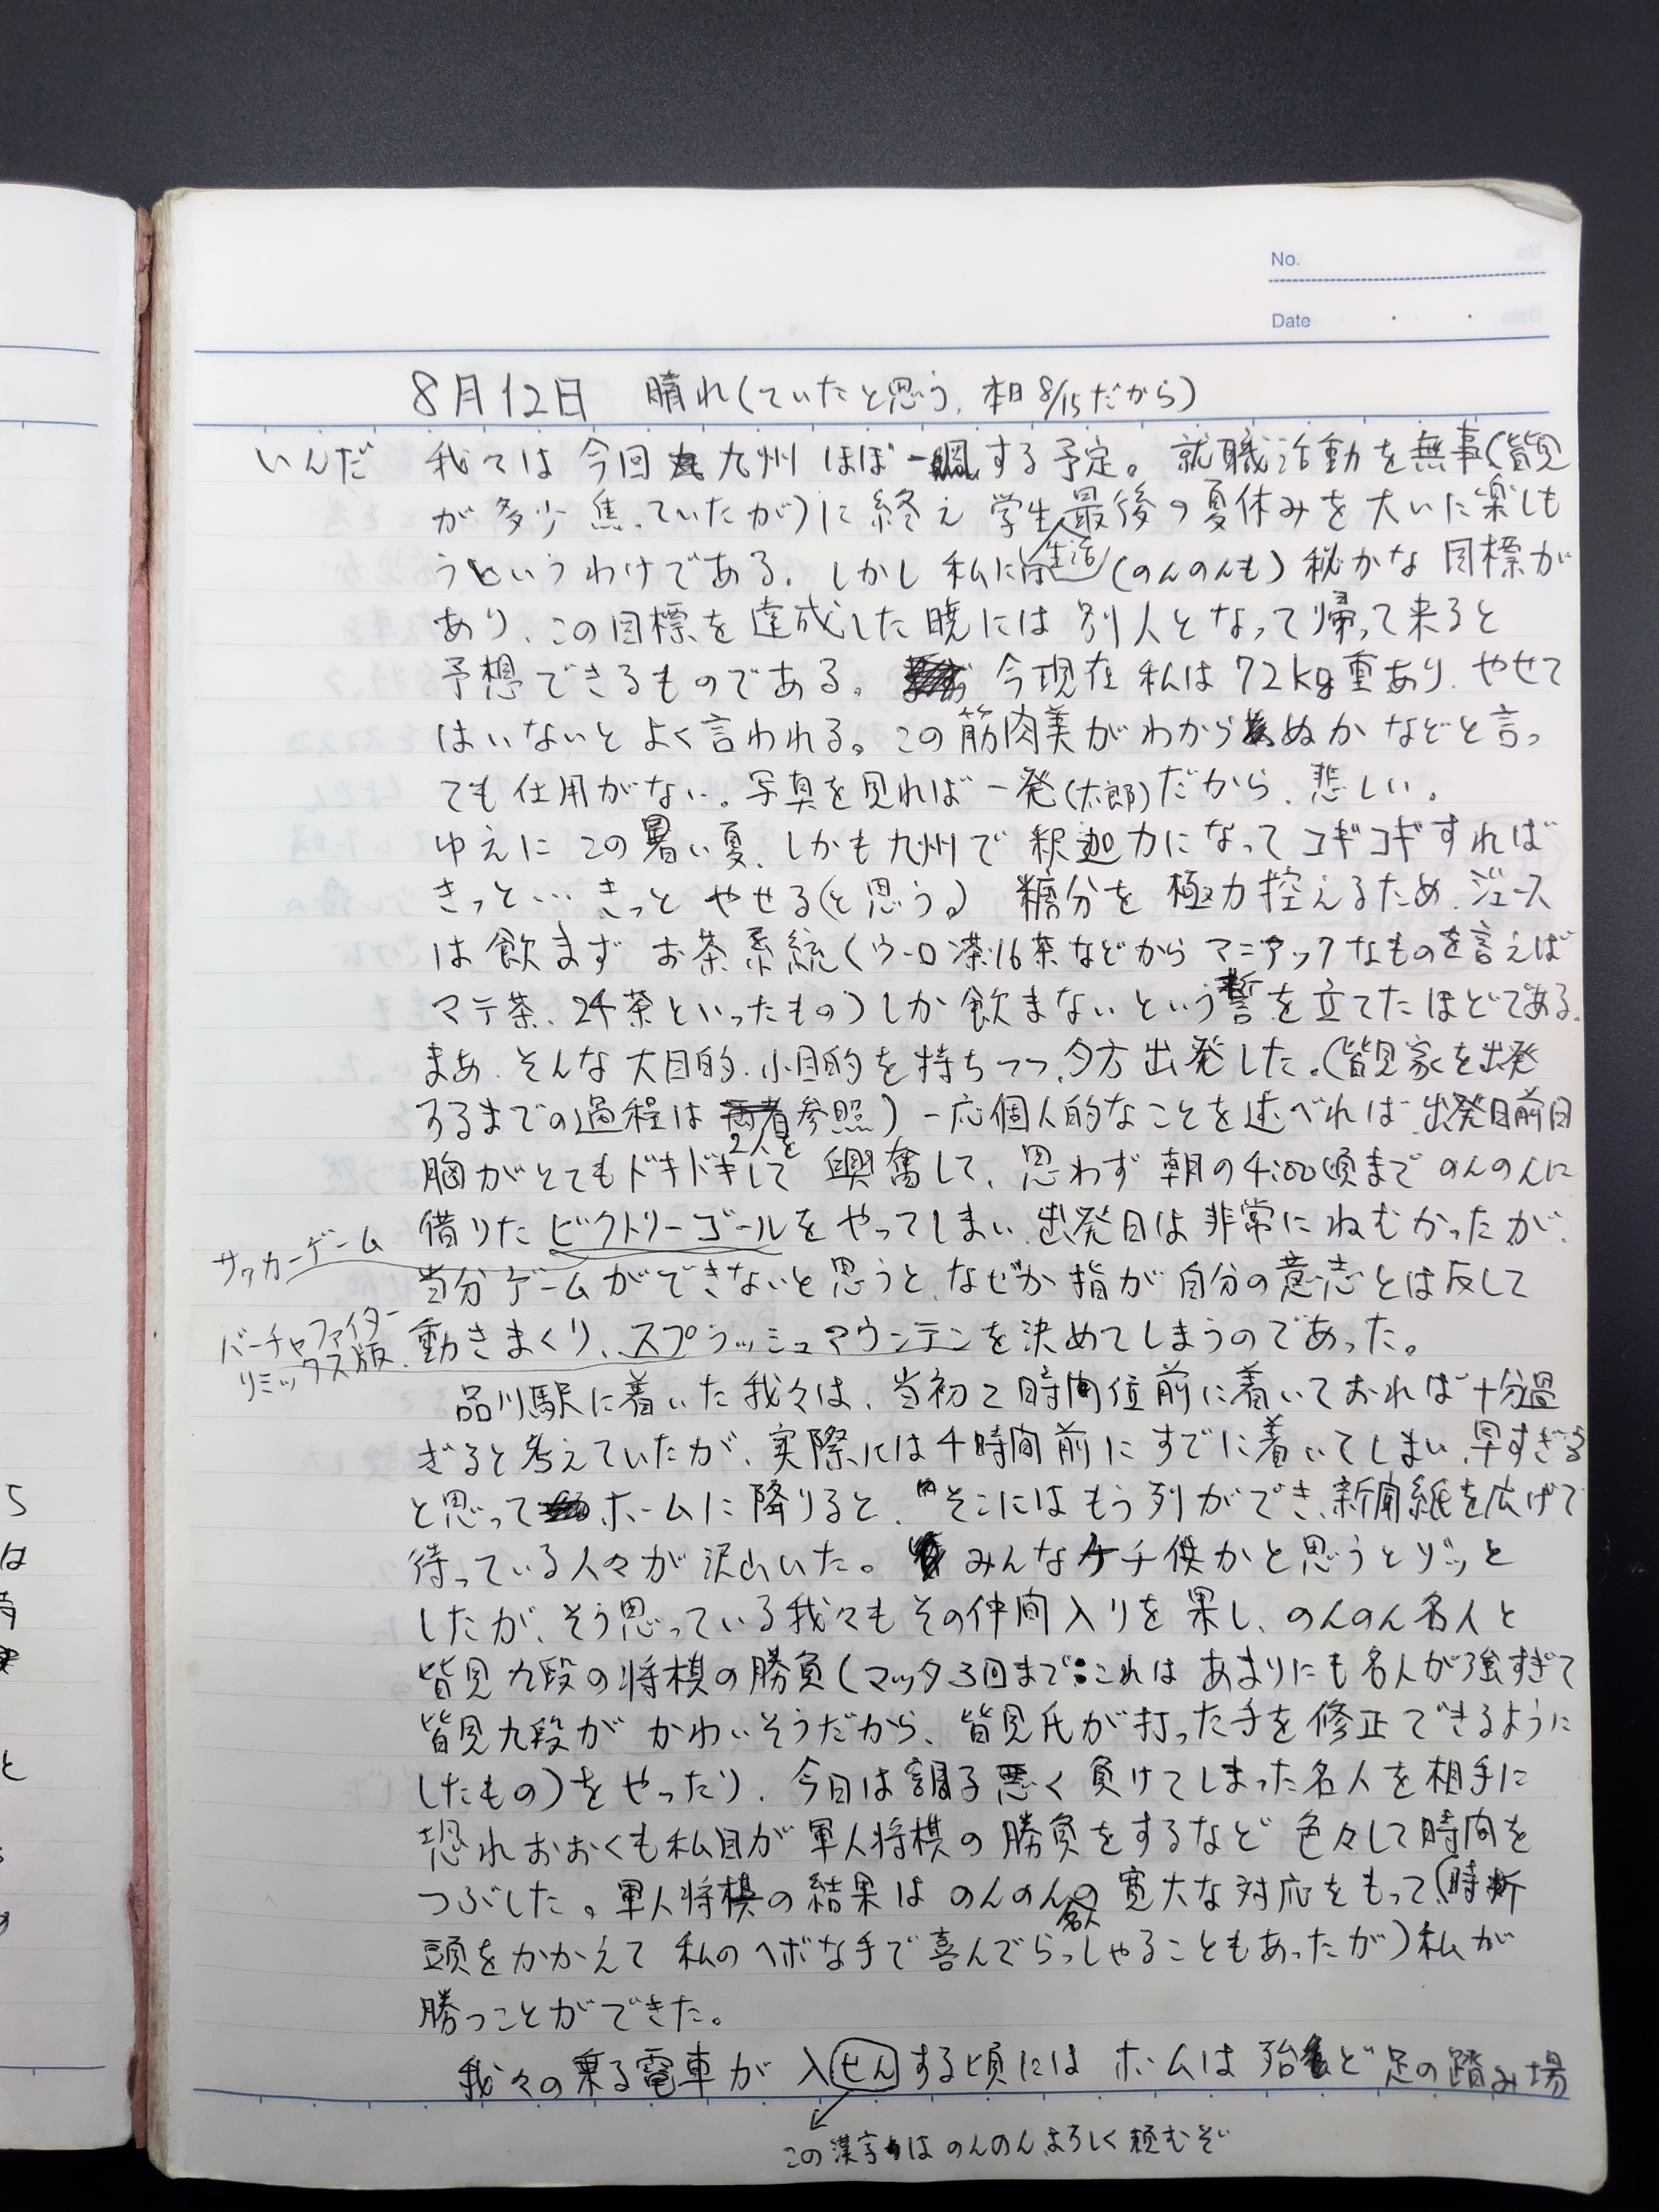 No.
Date
8月12日 晴れ(ていたと思う、本日8/15だから)
いんだ 我々は今回九州ほぼ一周する予定。就職活動を無事(皆見
が多少焦っていたが)に終え学生生活最後の夏休みを大いに楽しも
うというわけである。しかし私には(のんのんも)秘かな目標が
あり、この目標を達成した暁には別人となって帰って来ると
予想できるものである。今現在私は72kg重あり、やせて
はいないとよく言われる。この筋肉美がわからぬかなどと言っ
ても仕用がない。写真を見れば一発(太郎)だから、悲しい。
ゆえにこの暑い夏、しかも九州で釈迦力になってコギコギすれば
きっと…きっとやせる(と思う。)糖分を極力控えるため、ジュース
は飲まずお茶系統(ウーロン茶、16茶などからマニアックなものを言えば
マテ茶、24茶といったもの)しか飲まないという誓を立てたほどである。
まあ、そんな大目的、小目的を持ちつつ、夕方出発した。(皆見家を出発
するまでの過程は2人を参照)一応個人的なことを述べれば、出発日前日
胸がとてもドキドキして興奮して、思わず朝の4:00頃までのんのんに
借りたビクトリーゴールをやってしまい、出発日は非常にねむかったが、
サッカーゲーム
当分ゲームができないと思うと、なぜか指が自分の意志とは反して
バーチャファイター
リミックス版
動きまくり、スプラッシュマウンテンを決めてしまうのであった。
品川駅に着いた我々は、当初2時間位前に着いておれば十分過
ぎると考えていたが、実際には4時間前にすでに着いてしまい、早すぎる
と思ってホームに降りると、そこにはもう列ができ、新聞紙を広げて
待っている人々が沢山いた。みんなケチ供かと思うとゾッと
したが、そう思っている我々もその仲間入りを果し、のんのん名人と
皆見九段の将棋の勝負(マッタ3回まで:これはあまりにも名人が強すぎて
皆見九段がかわいそうだから、皆見氏が打った手を修正できるように
したもの)をやったり、今日は調子悪く負けてしまった名人を相手に
恐れおおくも私目が軍人将棋の勝負をするなど色々して時間を
つぶした。軍人将棋の結果はのんのん名人の寛大な対応をもって、(時折
頭をかかえて私のヘボな手で喜んでらっしゃることもあったが)私が
勝つことができた。
我々の乗る電車が入せんする頃にはホームは殆ど足の踏み場
この漢字はのんのんよろしく頼むぞ